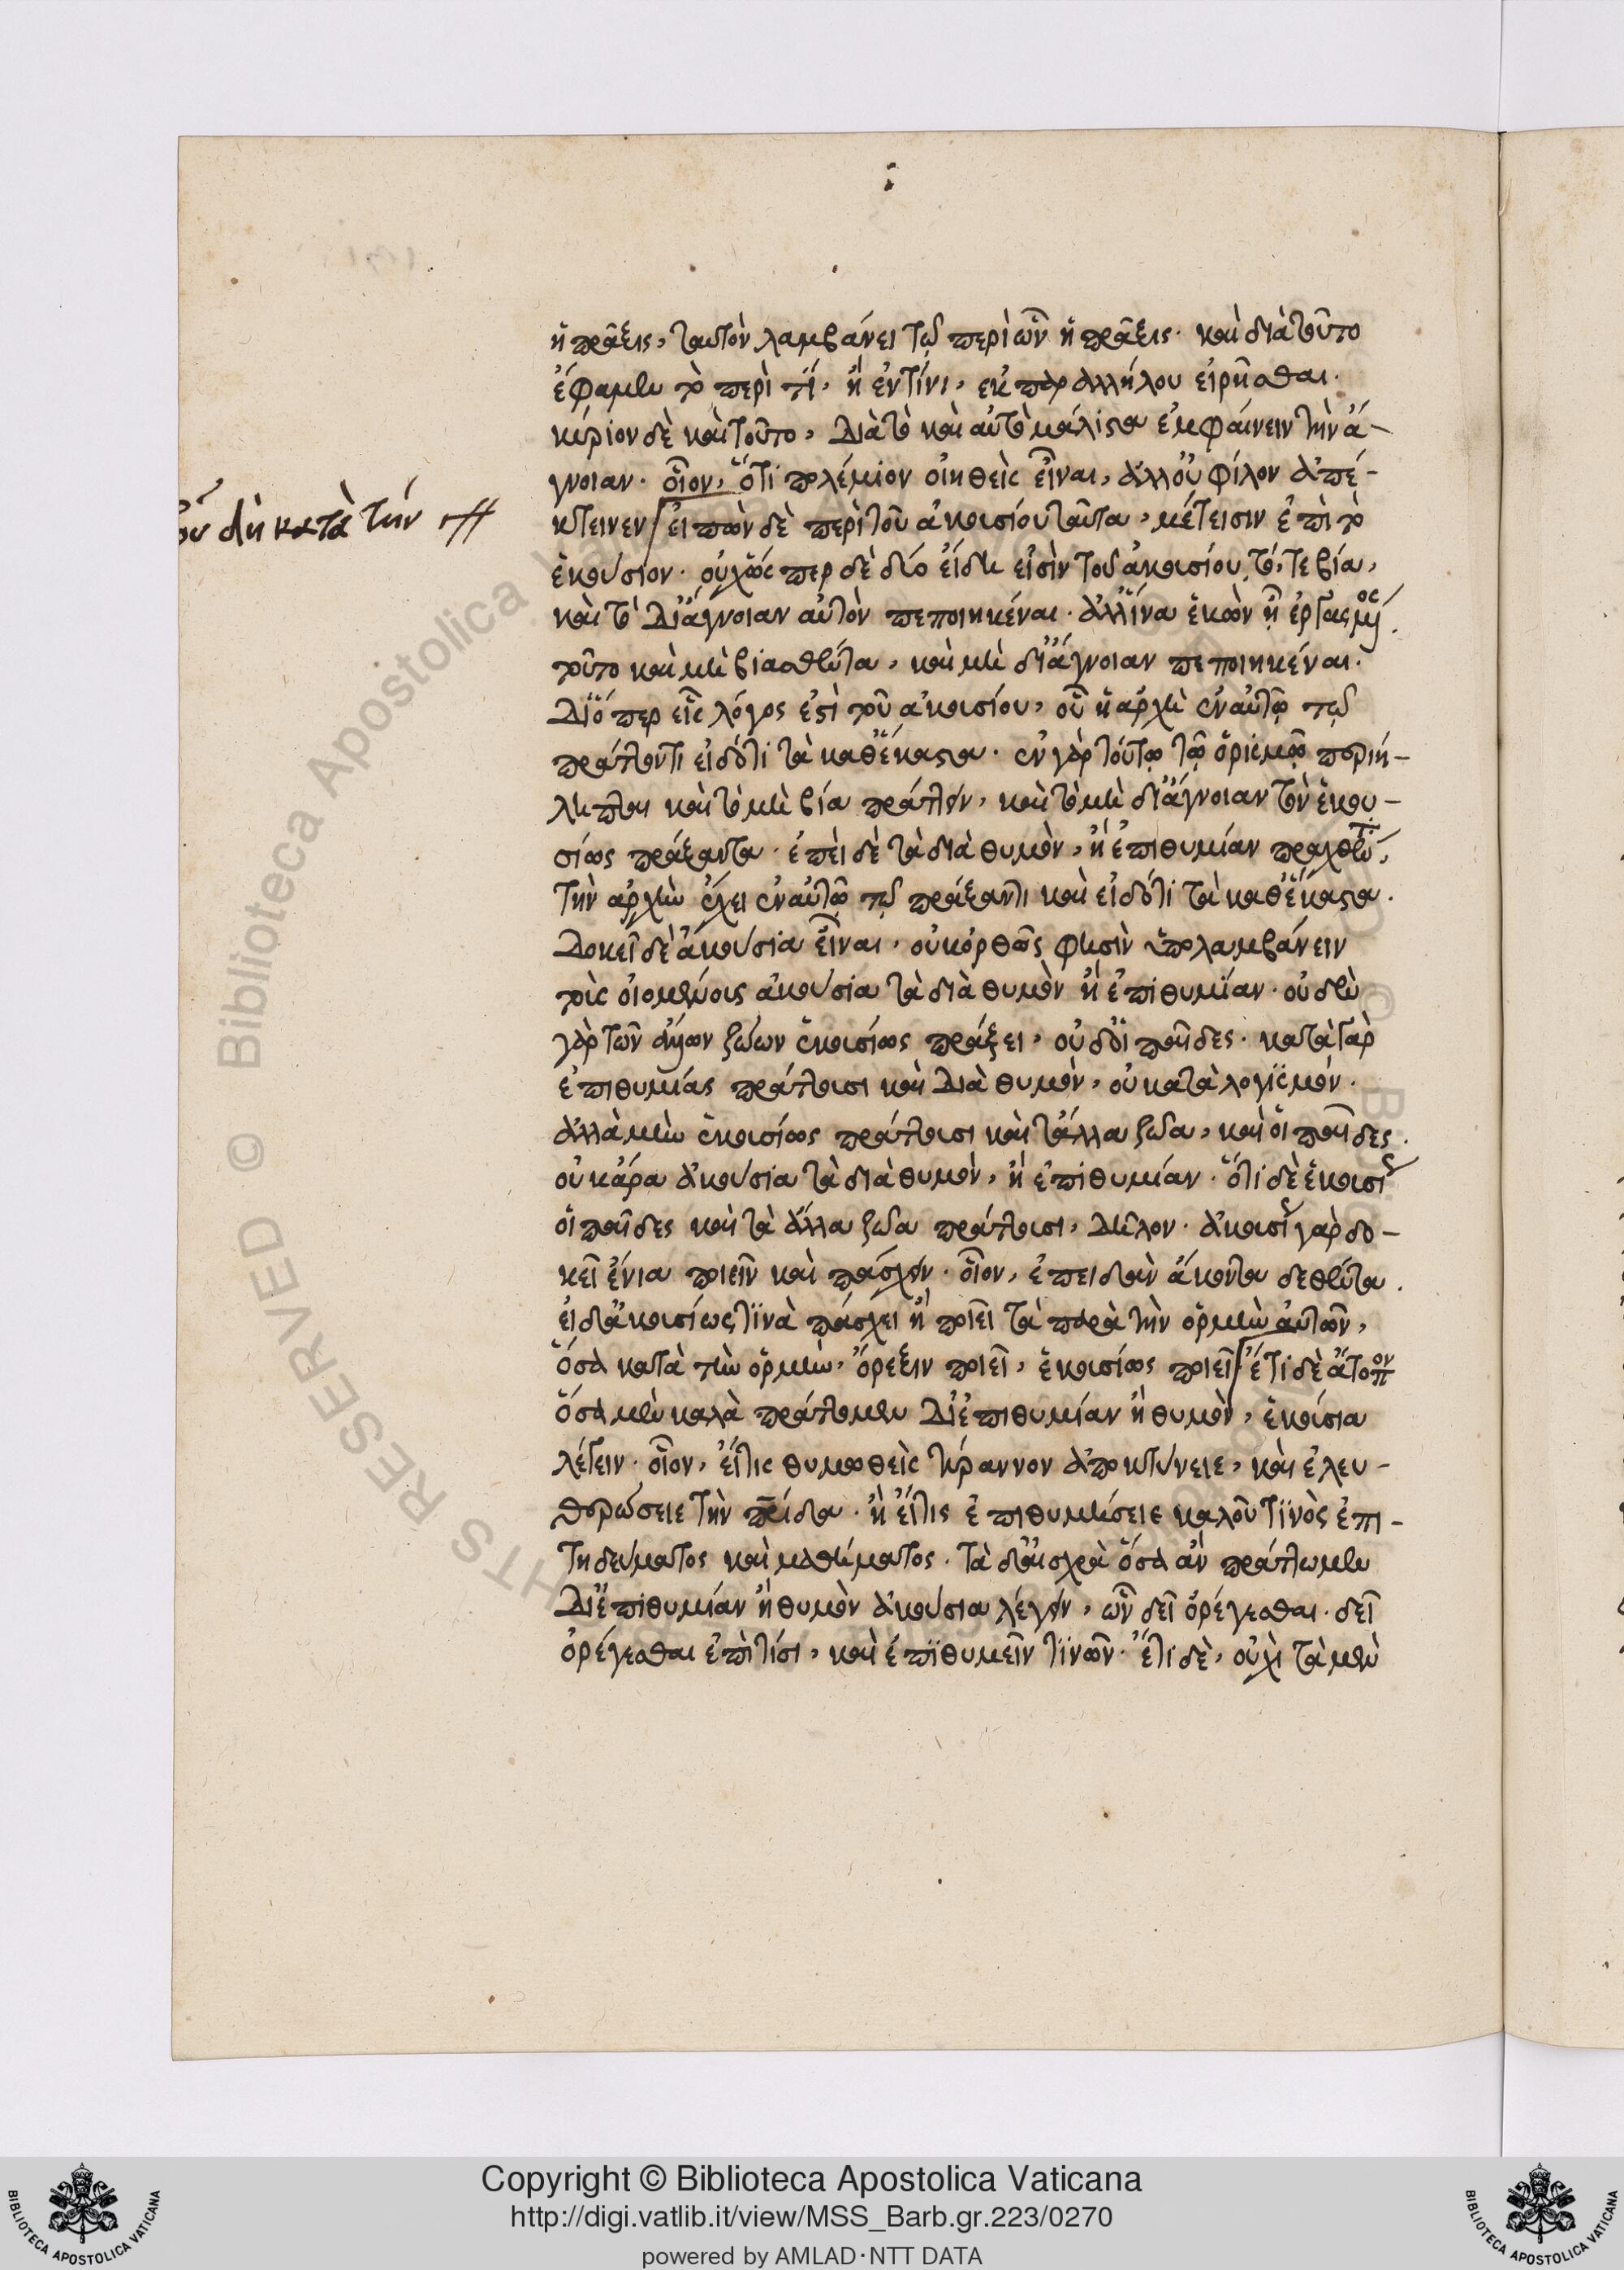 ἡ πρᾶξις, ταυτὸν λαμβάνει τῷ περὶ ὧν ἡ πρᾶξις· καὶ διὰ τοῦτο
ἔφαμεν τὸ περὶ τί, ἢ ἐν τίνι, ἐκ παραλλήλου εἰρῆσθαι.
κύριον δὲ καὶ τοῦτο, διὰ τὸ καὶ αὐτὸ μάλιστα ἐμφαίνειν τὴν ἄ-
γνοιαν· οἷον, ὅτι πολέμιον οἰηθεὶς εἶναι, ἀλλ' οὐ φίλον ἀπέ-
δὴ κατὰ τὴν
κτεινεν εἰπὼν δὲ περὶ τοῦ ἀκουσίου ταῦτα, μέτεισιν ἐπὶ τὸ
ἑκούσιον· οὐχ ὥσπερ δὲ δύο εἴδη εἰσὶν τοῦ ἀκουσίου, τό, τε βίᾳ,
καὶ τὸ δι' ἄγνοιαν αὐτὸν πεποιηκέναι· ἀλλ' ἵνα ἑκὼν ᾖ
τοῦτο καὶ μὴ βιασθέντα, καὶ μὴ δι' ἄγνοιαν πεποιηκέναι.
Διόπερ εἷς λόγος ἐστὶ τοῦ ἀκουσίου, οὗ ἡ ἀρχὴ ἐν αὐτῷ τῷ
πράττοντι εἰδότι τὰ καθ' ἕκαστα· ἐν γὰρ τούτῳ τῷ ὁρισμῷ περιή-
ληπται καὶ τὸ μὴ βίᾳ πράττειν, καὶ τὸ μὴ δι' ἄγνοιαν τὸν ἑκου-
σίως πράξαντα· ἐπεὶ δὲ τὰ διὰ θυμὸν, ἢ ἐπιθυμίαν πραχθέντα,
τὴν ἀρχὴν ἔχει ἐν αὐτῷ τῷ πράξαντι καὶ εἰδότι τὰ καθ' ἕκαστα.
Δοκεῖ δὲ ἀκούσια εἶναι, οὐκ ὀρθῶς φησὶν ὑπολαμβάνειν
τοὺς οἰομένους ἀκούσια τὰ διὰ θυμὸν ἢ ἐπιθυμίαν· οὐδὲν
γὰρ τῶν ἄλλων ζώων ἑκουσίως πράξει, οὐδ' οἱ παῖδες· κατὰ γὰρ
ἐπιθυμίας πράττουσι καὶ διὰ θυμὸν, οὐ κατὰ λογισμόν.
ἀλλὰ μὴν ἑκουσίως πράττουσι καὶ τἄλλα ζῶα, καὶ οἱ παῖδες.
οὐκ ἄρα ἀκούσια τὰ διὰ θυμὸν, ἢ ἐπιθυμίαν· ὅτι δὲ ἑκουσίως
οἱ παῖδες καὶ τὰ ἄλλα ζῶα πράττουσι, δῆλον· ἀκουσίως γὰρ δο-
κεῖ ἔνια ποιεῖν καὶ πάσχειν· οἷον, ἐπειδὰν ἄκοντα δεθέντα.
εἰ δ' ἀκουσίως τινὰ πάσχει ἢ ποιεῖ τὰ παρὰ τὴν ὁρμὴν αὐτῶν,
ὅσα κατὰ τὴν ὁρμὴν, ὄρεξιν ποιεῖ, ἑκουσίως ποιεῖ ἔτι δὲ ἄτοπον
ὅσα μὲν καλὰ πράττομεν δι' ἐπιθυμίαν ἢ θυμὸν, ἑκούσια
λέγειν· οἷον, εἴ τις θυμωθεὶς τύραννον ἀποκτείνειε, καὶ ἐλευ-
θερώσειε τὴν πατρίδα· ἢ εἴ τις ἐπιθυμήσειε καλοῦ τινὸς ἐπι-
τηδεύματος καὶ μαθήματος· τὰ δ' αἰσχρὰ ὅσα ἂν πράττωμεν
δι' ἐπιθυμίαν ἢ θυμὸν ἀκούσια λέγειν, ὧν δεῖ ὀρέγεσθαι· δεῖ
ὀρέγεσθαι ἐπὶ τίσι, καὶ ἐπιθυμεῖν τινῶν· ἔτι δὲ, οὐχὶ τὰ μὲν
Copyright © Biblioteca Apostolica Vaticana
http://digi.vatlib.it/view/MSS_Barb.gr.223/0270
powered by AMLAD·NTT DATA